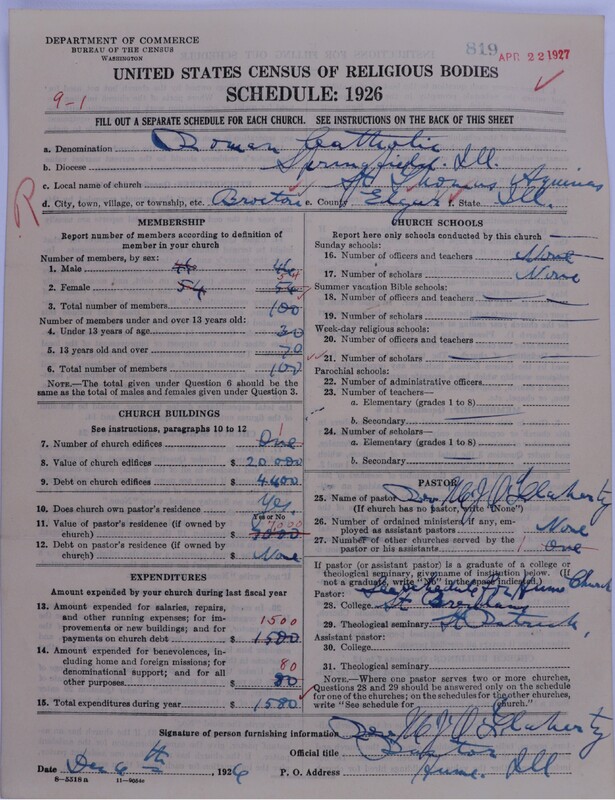 DEPARTMENT OF COMMERCE
BUREAU OF THE CENSUS
WASHINGTON
819 APR 22 1927
UNITED STATES CENSUS OF RELIGIOUS BODIES
SCHEDULE: 1926
9-1
FILL OUT A SEPARATE SCHEDULE FOR EACH CHURCH. SEE INSTRUCTIONS ON THE BACK OF THIS SHEET
a. Denomination Roman Catholic
b. Diocese Springfield. Ill.
c. Local name of church St Thomas Aquinas
d. City, town, village, or township, etc. Brocton e. County Edgar f. State Ill.
R
MEMBERSHIP
Report number of members according to definition of member in your church
Number of members, by sex:
1. Male 46 46
2. Female 54 54
3. Total number of members 100
Number of members under and over 13 years old:
4. Under 13 years of age 30
5. 13 years old and over 70
6. Total number of members 100
NOTE.—The total given under Question 6 should be the same as the total of males and females given under Question 3.
CHURCH BUILDINGS
See instructions, paragraphs 10 to 12
7. Number of church edifices One 1
8. Value of church edifices $ 20 000
9. Debt on church edifices $ 4600
10. Does church own pastor's residence Yes
Yes or No
11. Value of pastor's residence (if owned by church) $ 7000
12. Debt on pastor's residence (if owned by church) $ None
EXPENDITURES
Amount expended by your church during last fiscal year
13. Amount expended for salaries, repairs, and other running expenses; for improvements or new buildings; and for payments on church debt $ 1500 1500
14. Amount expended for benevolences, including home and foreign missions; for denominational support; and for all other purposes $ 80 80
15. Total expenditures during year $ 1580
CHURCH SCHOOLS
Report here only schools conducted by this church
Sunday schools:
16. Number of officers and teachers None
17. Number of scholars None
Summer vacation Bible schools:
18. Number of officers and teachers
19. Number of scholars
Week-day religious schools:
20. Number of officers and teachers
21. Number of scholars
Parochial schools:
22. Number of administrative officers
23. Number of teachers—
a. Elementary (grades 1 to 8)
b. Secondary
24. Number of scholars—
a. Elementary (grades 1 to 8)
b. Secondary
PASTOR
25. Name of pastor Rev M J O'Flaherty
(If church has no pastor, write "None")
26. Number of ordained ministers, if any, employed as assistant pastors None
27. Number of other churches served by the pastor or his assistants 1 One
If pastor (or assistant pastor) is a graduate of a college or theological seminary, give name of institution below. (If not a graduate, write "No" in the space indicated.)
Pastor: See schedule for Hume Church
28. College St
29. Theological seminary St Patrick
Assistant pastor:
30. College
31. Theological seminary
NOTE.—Where one pastor serves two or more churches, Questions 28 and 29 should be answered only on the schedule for one of the churches; on the schedules for the other churches, write "See schedule for church."
Signature of person furnishing information Rev M J O'Flaherty
Official title Pastor
Date Dec 6th, 1926 P. O. Address Hume. Ill
8-5518a 11-9054c